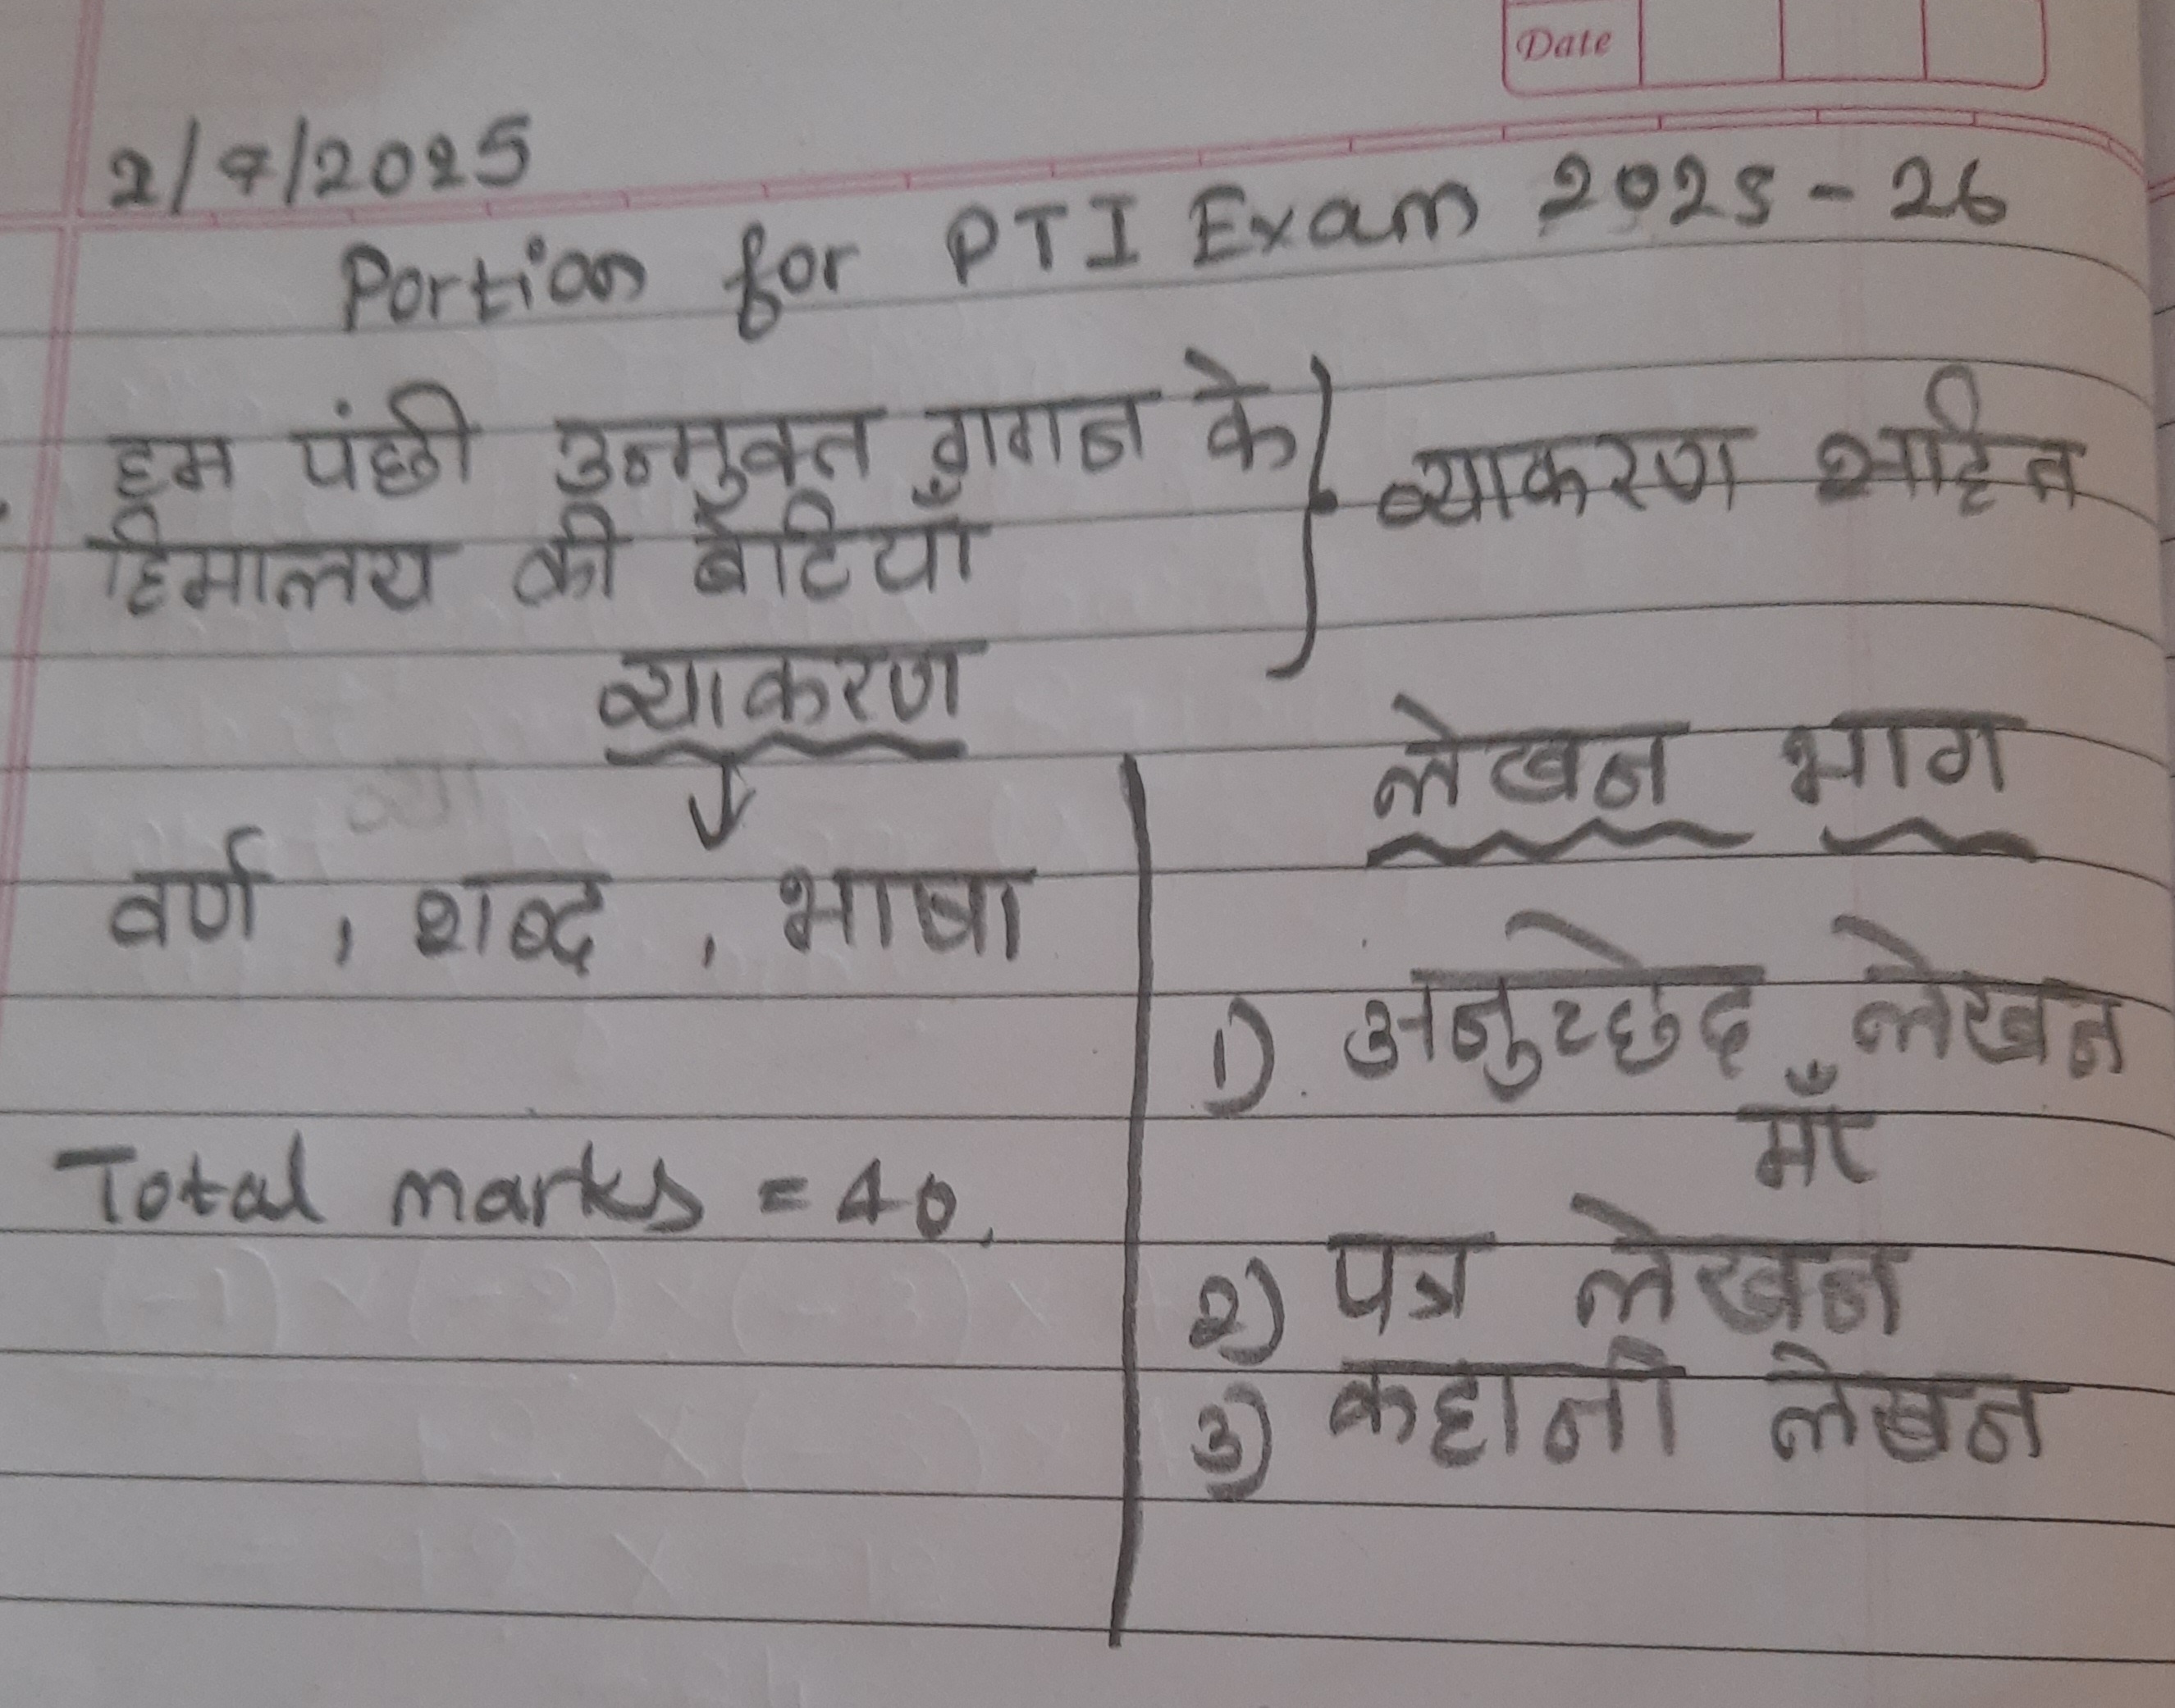 Date
2/7/2025
Portion for PTI Exam 2025-26
हम पंछी उन्मुक्त गगन के
व्याकरण सहित
हिमालय की बेटियाँ
व्याकरण
वर्ण , शब्द , भाषा
Total marks = 40.
लेखन भाग
1) अनुच्छेद लेखन
माँ
2) पत्र लेखन
3) कहानी लेखन